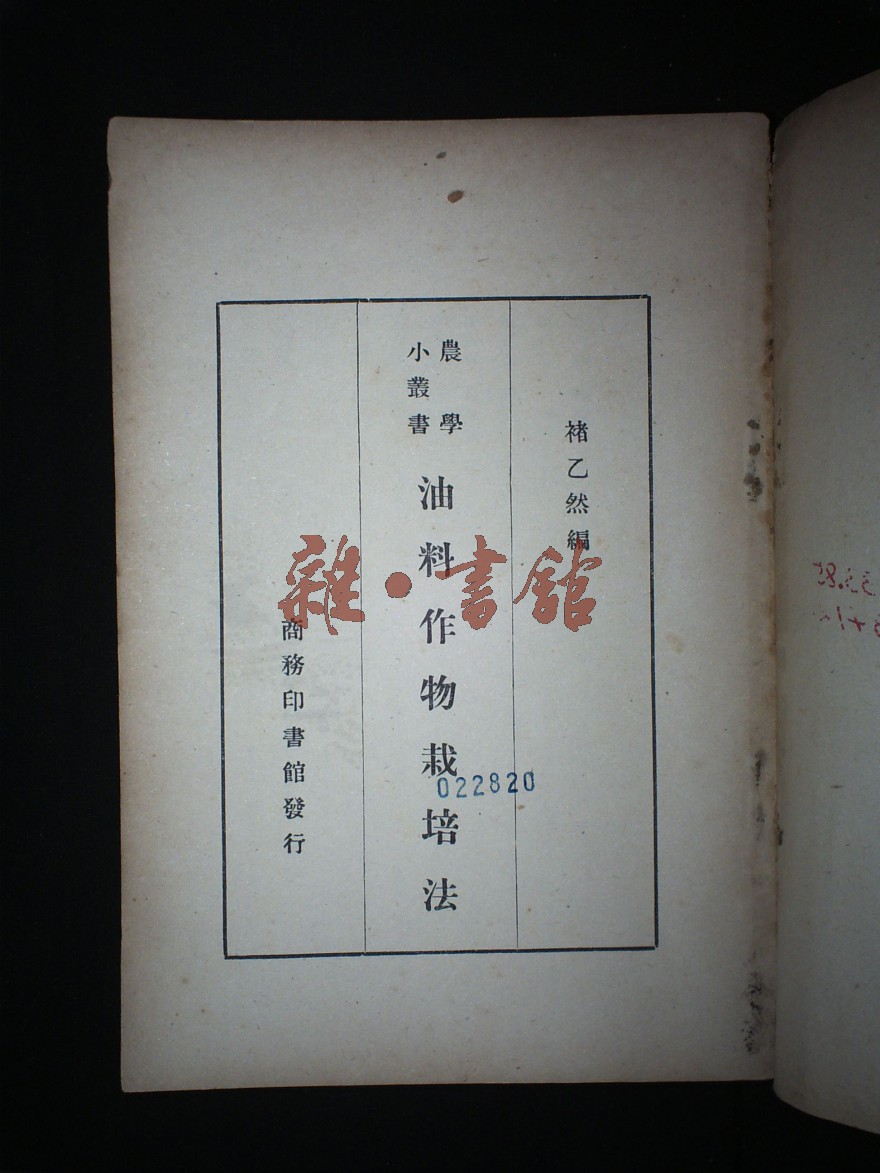 褚乙然編
農學
小叢書
油料作物栽培法
商務印書館發行
雜·書館
022820